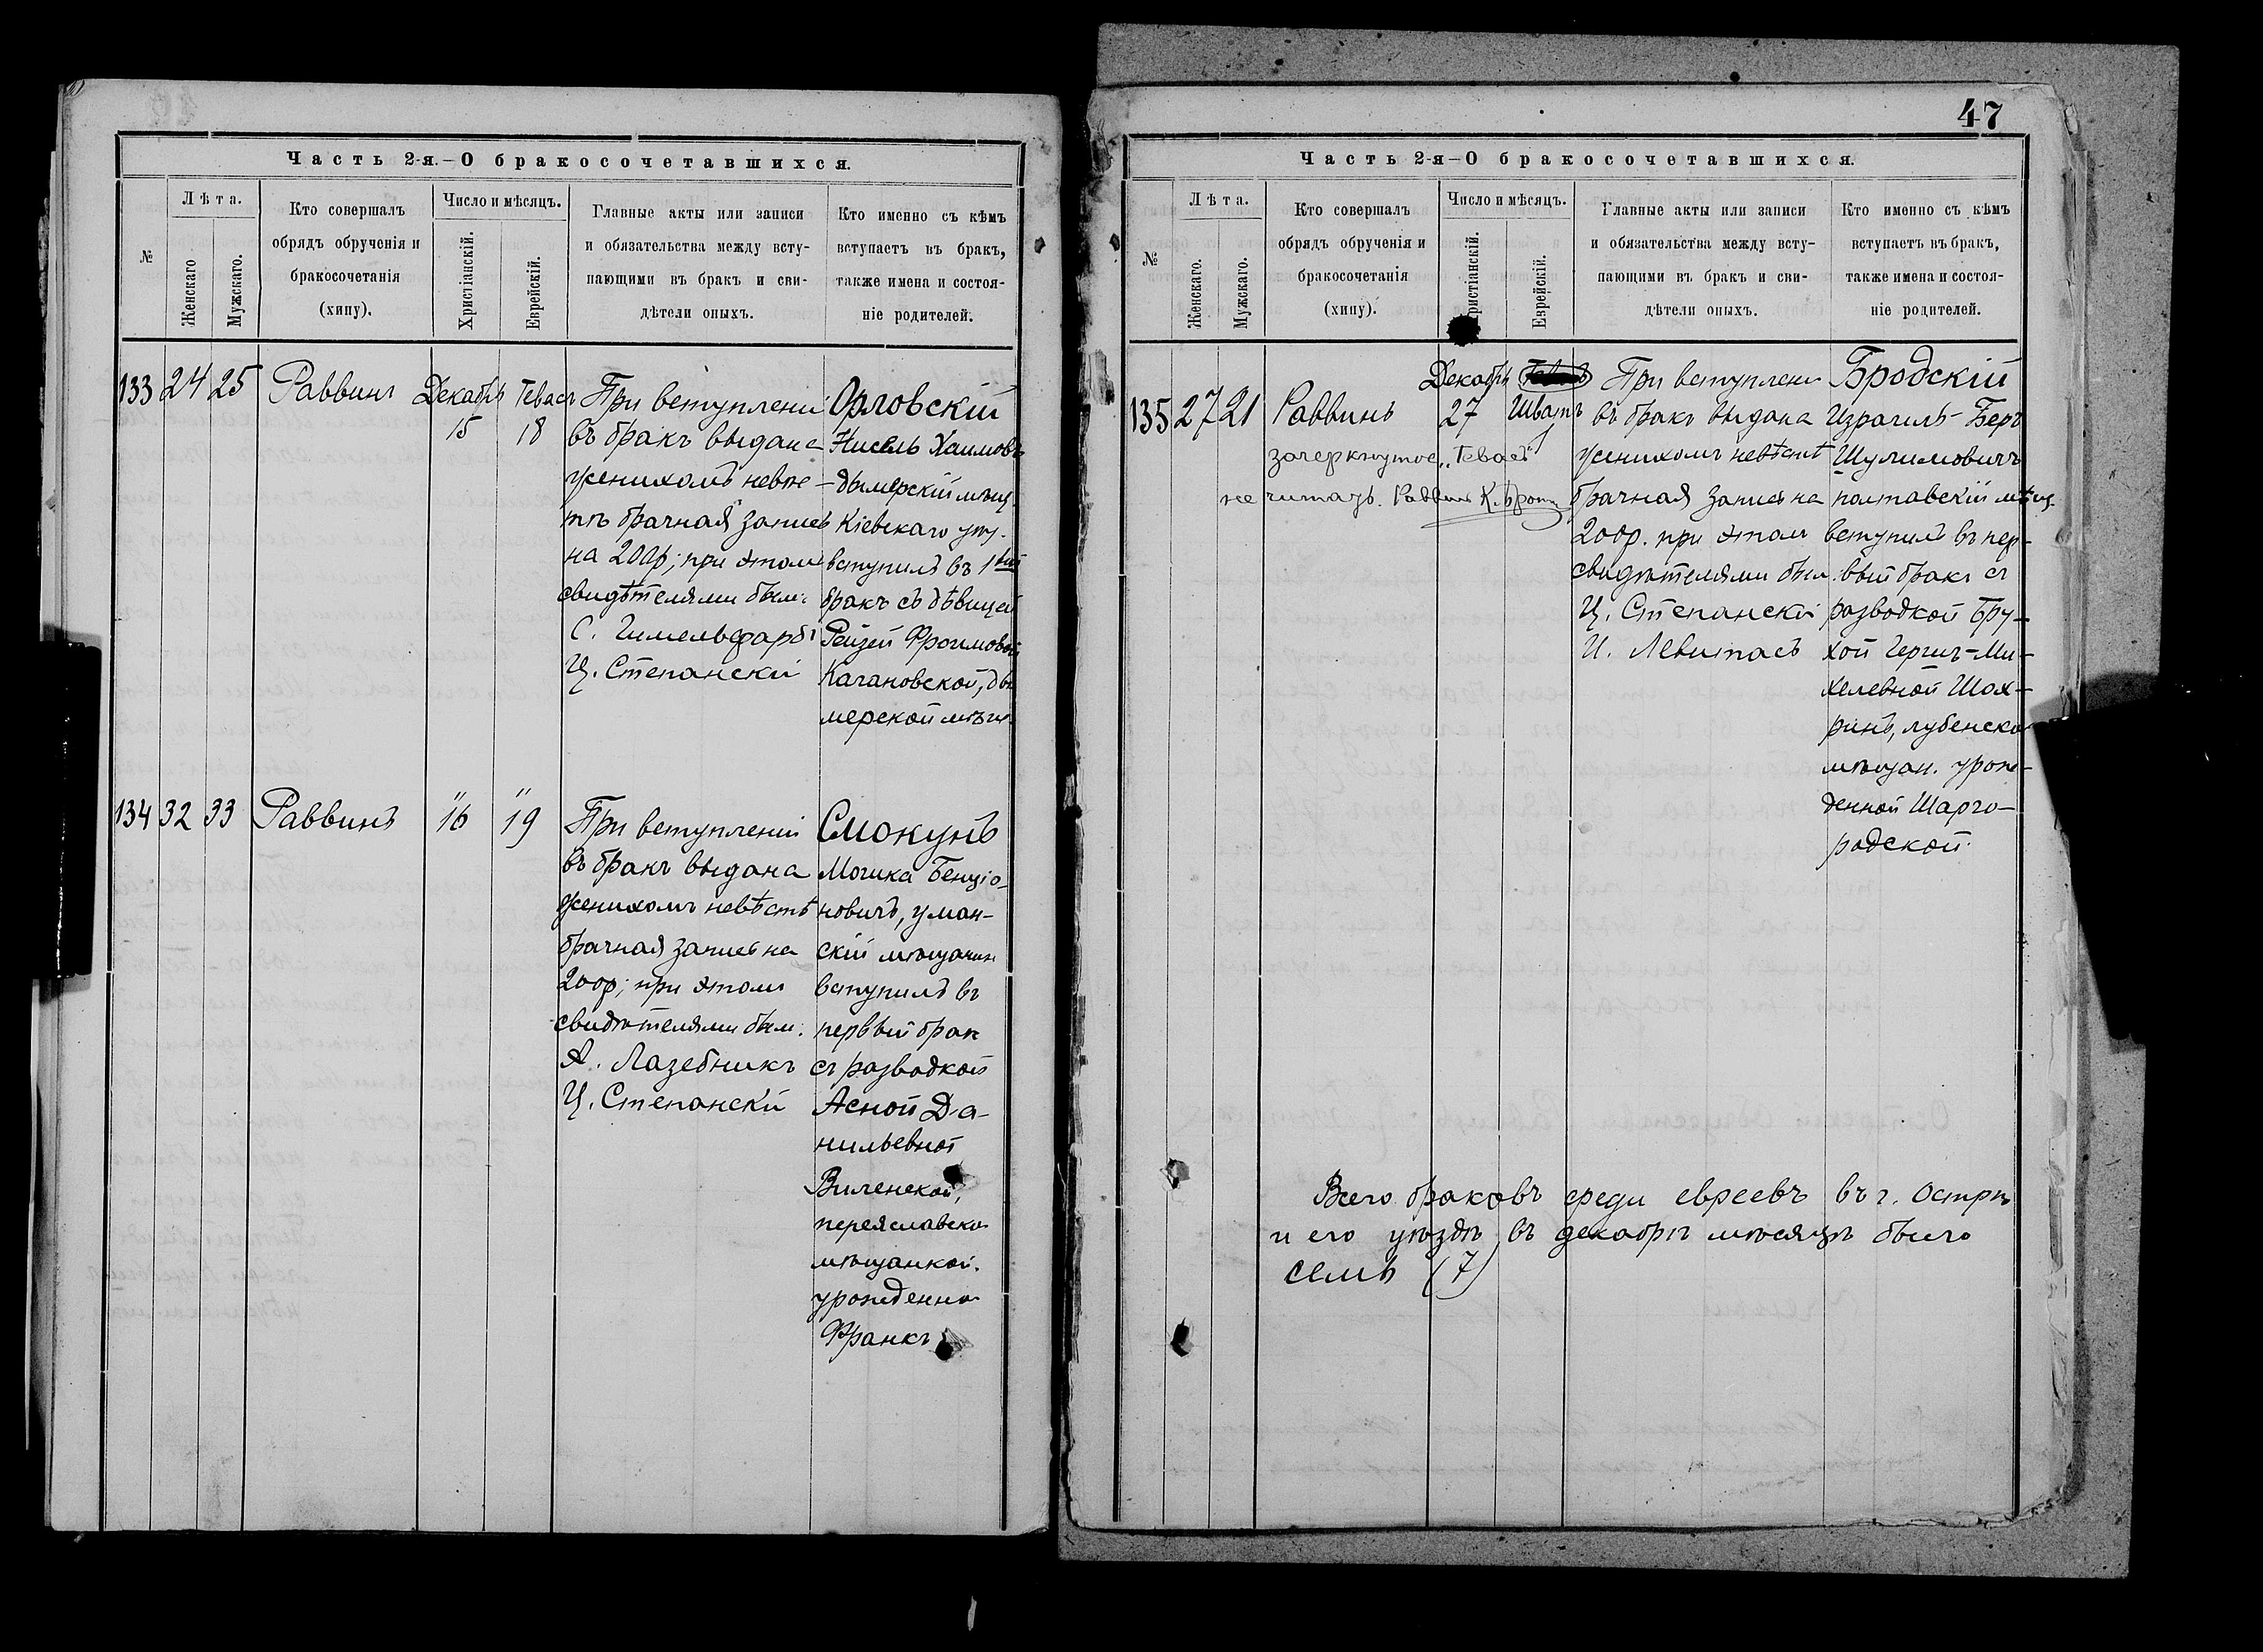 Часть 2-я.—О бракосочетавшихся.
№
Лѣта.
Женскаго
Мужскаго.
Кто совершалъ
обрядъ обрученія и
бракосочетанія
(хипу).
Число и мѣсяцъ.
Христіанскій.
Еврейскій.
Главные акты или записи
и обязательства между всту-
пающими въ бракъ и сви-
дѣтели оныхъ.
Кто именно съ кѣмъ
вступаетъ въ бракъ,
также имена и состоя-
ніе родителей.
133 24 25 Раввинъ Декабрь 15 Теваст 18
При вступлени
въ бракъ выдана
женихомъ невѣс-
тѣ брачная запись
на 200р; при этомъ
свидѣтелями были:
С. Гимельфарбъ
Ц. Степанскій
Орловскій
Нисель Хаимовъ
дымерскій мѣщ.
Кіевскаго уѣз.
вступилъ въ 1ый
бракъ съ дѣвицей
Рейзей Фроимовой
Кагановской, ды
мерской мѣщ.
134 32 33 Раввинъ " 16 " 19
При вступленіи
въ бракъ выдана
женихомъ невѣстѣ
брачная запись на
200р; при этомъ
свидѣтелями были:
А. Лазебникъ
Ц. Степанскій
Смокунъ
Мошка Бенціо-
новичъ, уман-
скій мѣщанин
вступилъ въ
первый брак
съ разводкой
Асной Да-
нильевной
Виленской,
переяславско
мѣщанкой.
урожденно
Франкъ
47
Часть 2-я—О бракосочетавшихся.
№
Лѣта.
Женскаго.
Мужскаго.
Кто совершалъ
обрядъ обрученія и
бракосочетанія
(хипу).
Число и мѣсяцъ.
Христіанскій.
Еврейскій.
Главные акты или записи
и обязательства между всту-
пающими въ бракъ и сви-
дѣтели оныхъ.
Кто именно съ кѣмъ
вступаетъ въ бракъ,
также имена и состоя-
ніе родителей.
135 27 21 Раввинъ Декабрь 27 Шватъ 1
зачеркнутое „Тевас"
не читать. Раввин
При вступлени
въ бракъ выдана
женихомъ невѣстѣ
брачная запись на
200р. при этомъ
свидѣтелями были:
Ц. Степанскі
И. Левитасъ
Бродскій
Израиль-Беръ
Шулимовичъ
полтавскій мѣщ.
вступилъ въ пер-
вый бракъ съ
разводкой Бру-
хой Черич-Ми-
хелевной Шох-
ринъ, лубенско
мѣщан. урож-
денной Шарго-
родской.
Всего браковъ среди евреевъ въ г. Острѣ
и его уѣздѣ въ декабрѣ мѣсяцѣ было
семь (7)